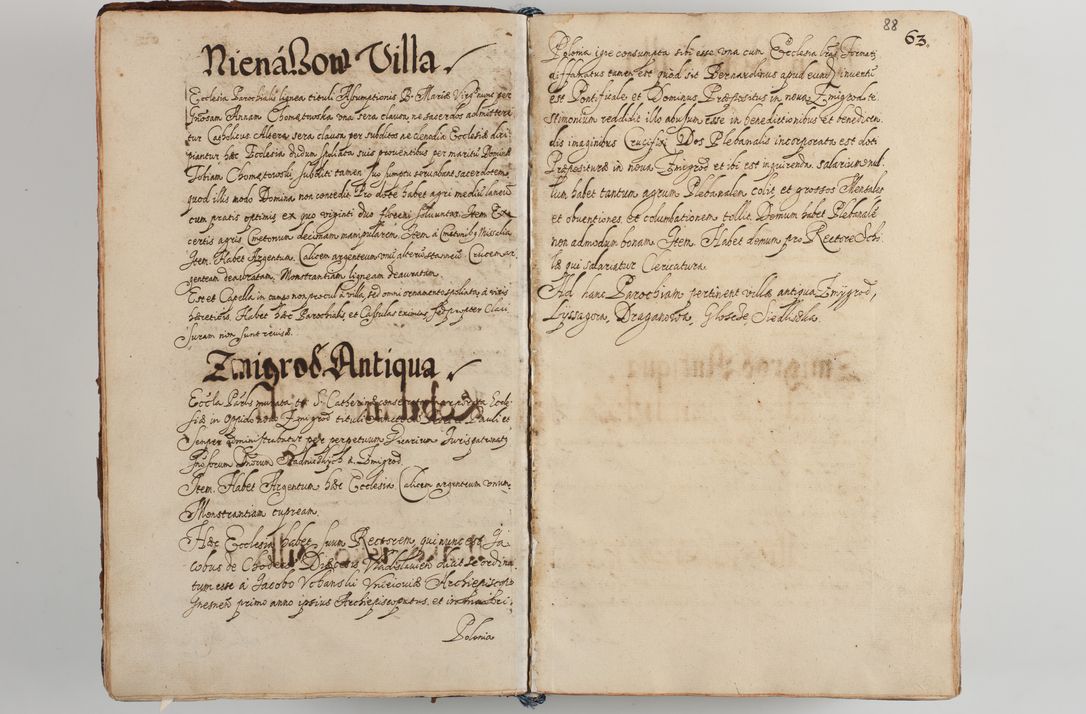 Nienaßow Villa
Ecclesia Parochialis lignea tituli Assumptionis B. Mariæ Virg. nunc per
Gnosam Annam Chomętowska una sera clausa, ne sacerdos admitteri
tur Catholicus Altera sera clausa per subditos ne clenodia Ecclesiæ diri
piantur, hæc Ecclesia dudum spoliata suis proventibus per maritū Dominæ
Tobiam Chomętowski, subditi tamen suo sumptu servabant sacerdotem,
quod illis modo Domina non concedit. Pro dote habet agri mediū laneū
cum pratis optimis, ex quo viginti duo floreni solvuntur. Item Ex
certis agris Cmetonum decimam manipularem. Item à Cmetonibus Missalia
Item. Habet Argentum. Calicem argenteum unū alterū stanneū. Crucem ar
genteam deauratam. Monstrantiam ligneam deauratam.
Est et Capella in campo non procul à villa, sed omni ornamento spoliata, à viris
hæreticis. Habet hæc Parochialis et Casulas tamen, sed propter clau
suram non sunt revisæ.
Zmigrod Antiqua
Eccla Parlis murata tt. S. Catherinæ consecrata
siæ in oppido novo Zmigrod tituli Sancti Petri et Pauli et
semper administrabatur per perpetuum Vicarium Juris patronatq
Gnosorum Dnorum Stadniczkych à Zmigrod.
Item. Habet Argentum hæc Ecclesia Calicem argenteum unum,
Monstrantiam cupream.
Hæc Ecclesia habet suum Rectorem, qui nunc est Ja
cobus de Chodecz Diæcesis Vladislavien dicit se ordina
tum esse à Jacobo Uchanski Unieioviæ Archiepiscopo
Gnesnen primo anno ipsius Archiepiscopatus, et in
Polonia
88
63.
Polonia igne consumpta sibi esse una cum Ecclesia lras Formatas
diffamatus tamen est quod sit Bernardinus apud eund inventū
est Pontificale, et Dominus Præpositus in nova Zmigrod te
stimonium reddidit illo abusum esse in benedictionibus et benedicen
dis imaginibus Crucifixi. Dos Plebanalis incorporata est doti
Præposituræ in nova Zmigrod et ibi est inquirenda. salarium nul
lum habet tantum agrum Plebanalem colit, et grossos Mensales
et obventiones, et columbationem tollit. Domum habet Plebanalē
non admodum bonam. Item. Habet domum pro Rectore Scho
læ qui salariatur Clericatura.
Ad hanc Parochiam pertinent villæ antiqua Zmygrod,
Lyssagora, Draganowa, Glosede Siedliska.